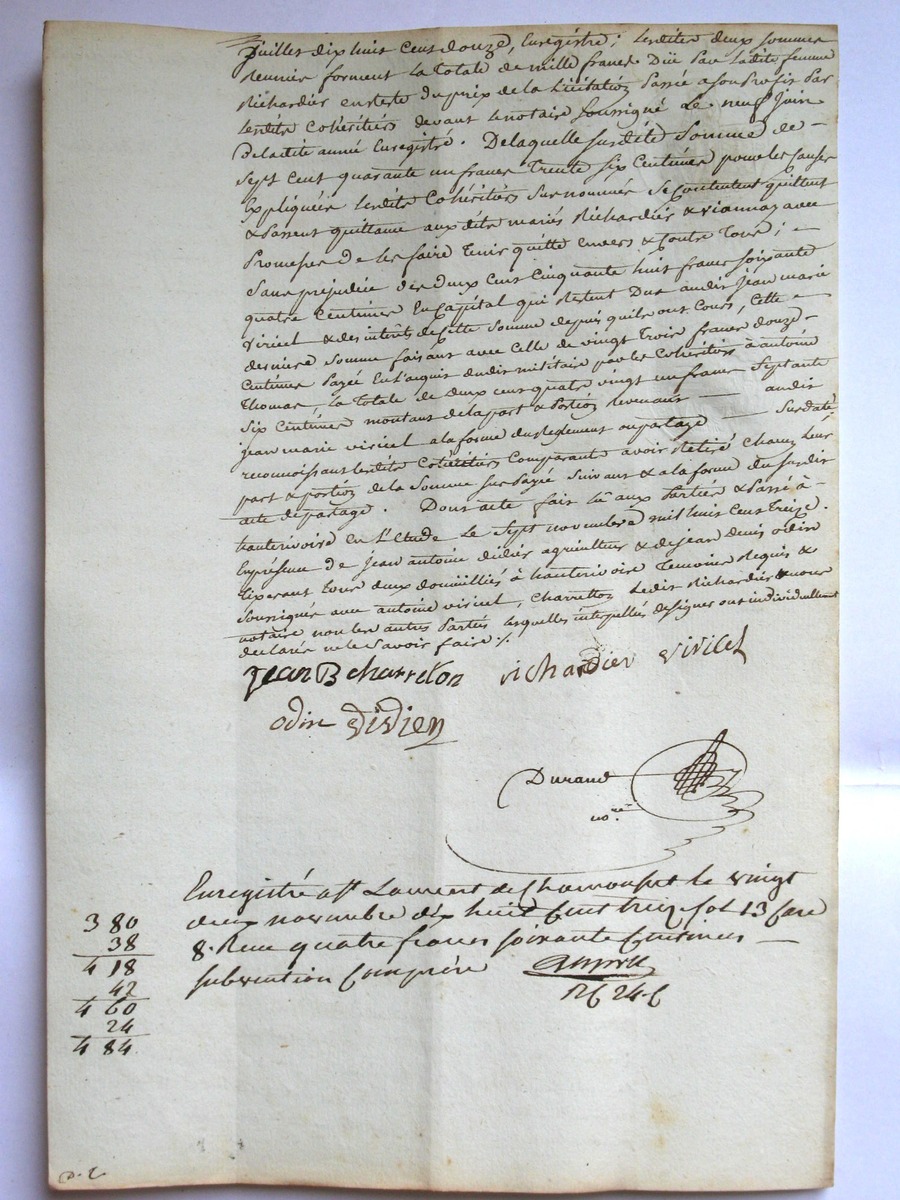 Juillet dix huit cent douze, Enregistré ; lesdites deux sommes
Reunies forment la totale de mille francs Düe par ladite femme
Richardier en reste du prix de la Licitation Passée a son Profit Par
lesdits Cohéritiers devant le notaire soussigné Le neuf juin
de ladite année Enregistré. De laquelle susdite Somme de —
Sept cent quarante un francs Trente six Centimes pour les causes
Expliquées lesdits Cohéritiers Surnommés Se Contentent quittent
& Passent quittance auxdits mariés Richardier & viannay avec
Promesse de les faire Tenir quitte envers & Contre Tous ; —
Sans préjudice des deux cent Cinquante huit francs soixante
quatre Centimes En Capital qui Restent Dus audit Jean marie
viricel & des intérêts de Cette Somme depuis qu'ils ont Cours, Cette —
derniere Somme faisant avec Celle de vingt trois francs douze —
Centimes Payée En l'acquit dudit militaire par les Cohéritiers à antoine
Thomas — la Totale de deux cent quatre vingt un francs Septante
Six Centimes montant de la part & Portion revenant — audit
jean marie viricel a la forme du Reglement ou partage — Susdaté,
reconnoissant lesdits Cohéritiers Comparants avoir Retiré Chacun leur
part & portion de la Somme sus Payée Suivant & a la forme du susdit
acte de partage. Dont acte fait lû aux Parties & Passé à —
hauterivoire en l'Etude le Sept novembre mil huit Cent treize.
En présence de Jean antoine didier agriculteur & de jean denis odin
Tixerant tous deux domiciliés à hauterivoire Temoins Requis &
Soussignés avec antoine viricel, Charretton Ledit Richardier & nous
notaire non les autres Parties lesquelles interpellées de signer ont individuellement
declarés ne le Savoir faire ./.
Jean B charreton richardier viricel
odin didier
Durand
no.re
Enregistré a St Laurent de Chamousset le vingt
deux novembre dix huit Cent treize fol 13 Case
8. Recu quatre francs soixante Centimes —
subvention Comprise
3 80
38
4 18
42
4 60
24
4 84